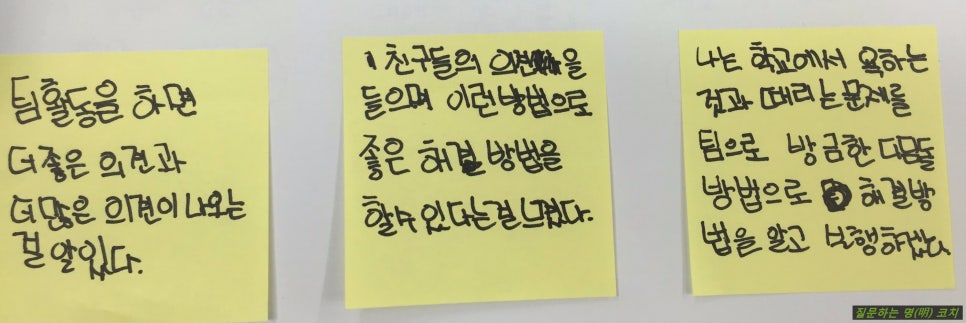 팀활동을 하면
더 좋은 의견과
더 많은 의견이 나오는
걸 알았다.
친구들의 의견을
들으며 이런 방법으로
좋은 해결 방법을
할 수 있다는 걸 느꼈다.
나는 학교에서 욕하는
것과 때리는 문제를
팀으로 방금한
방법으로 해결방
법을 알고 보행하겠다.
질문하는 명(明) 코치